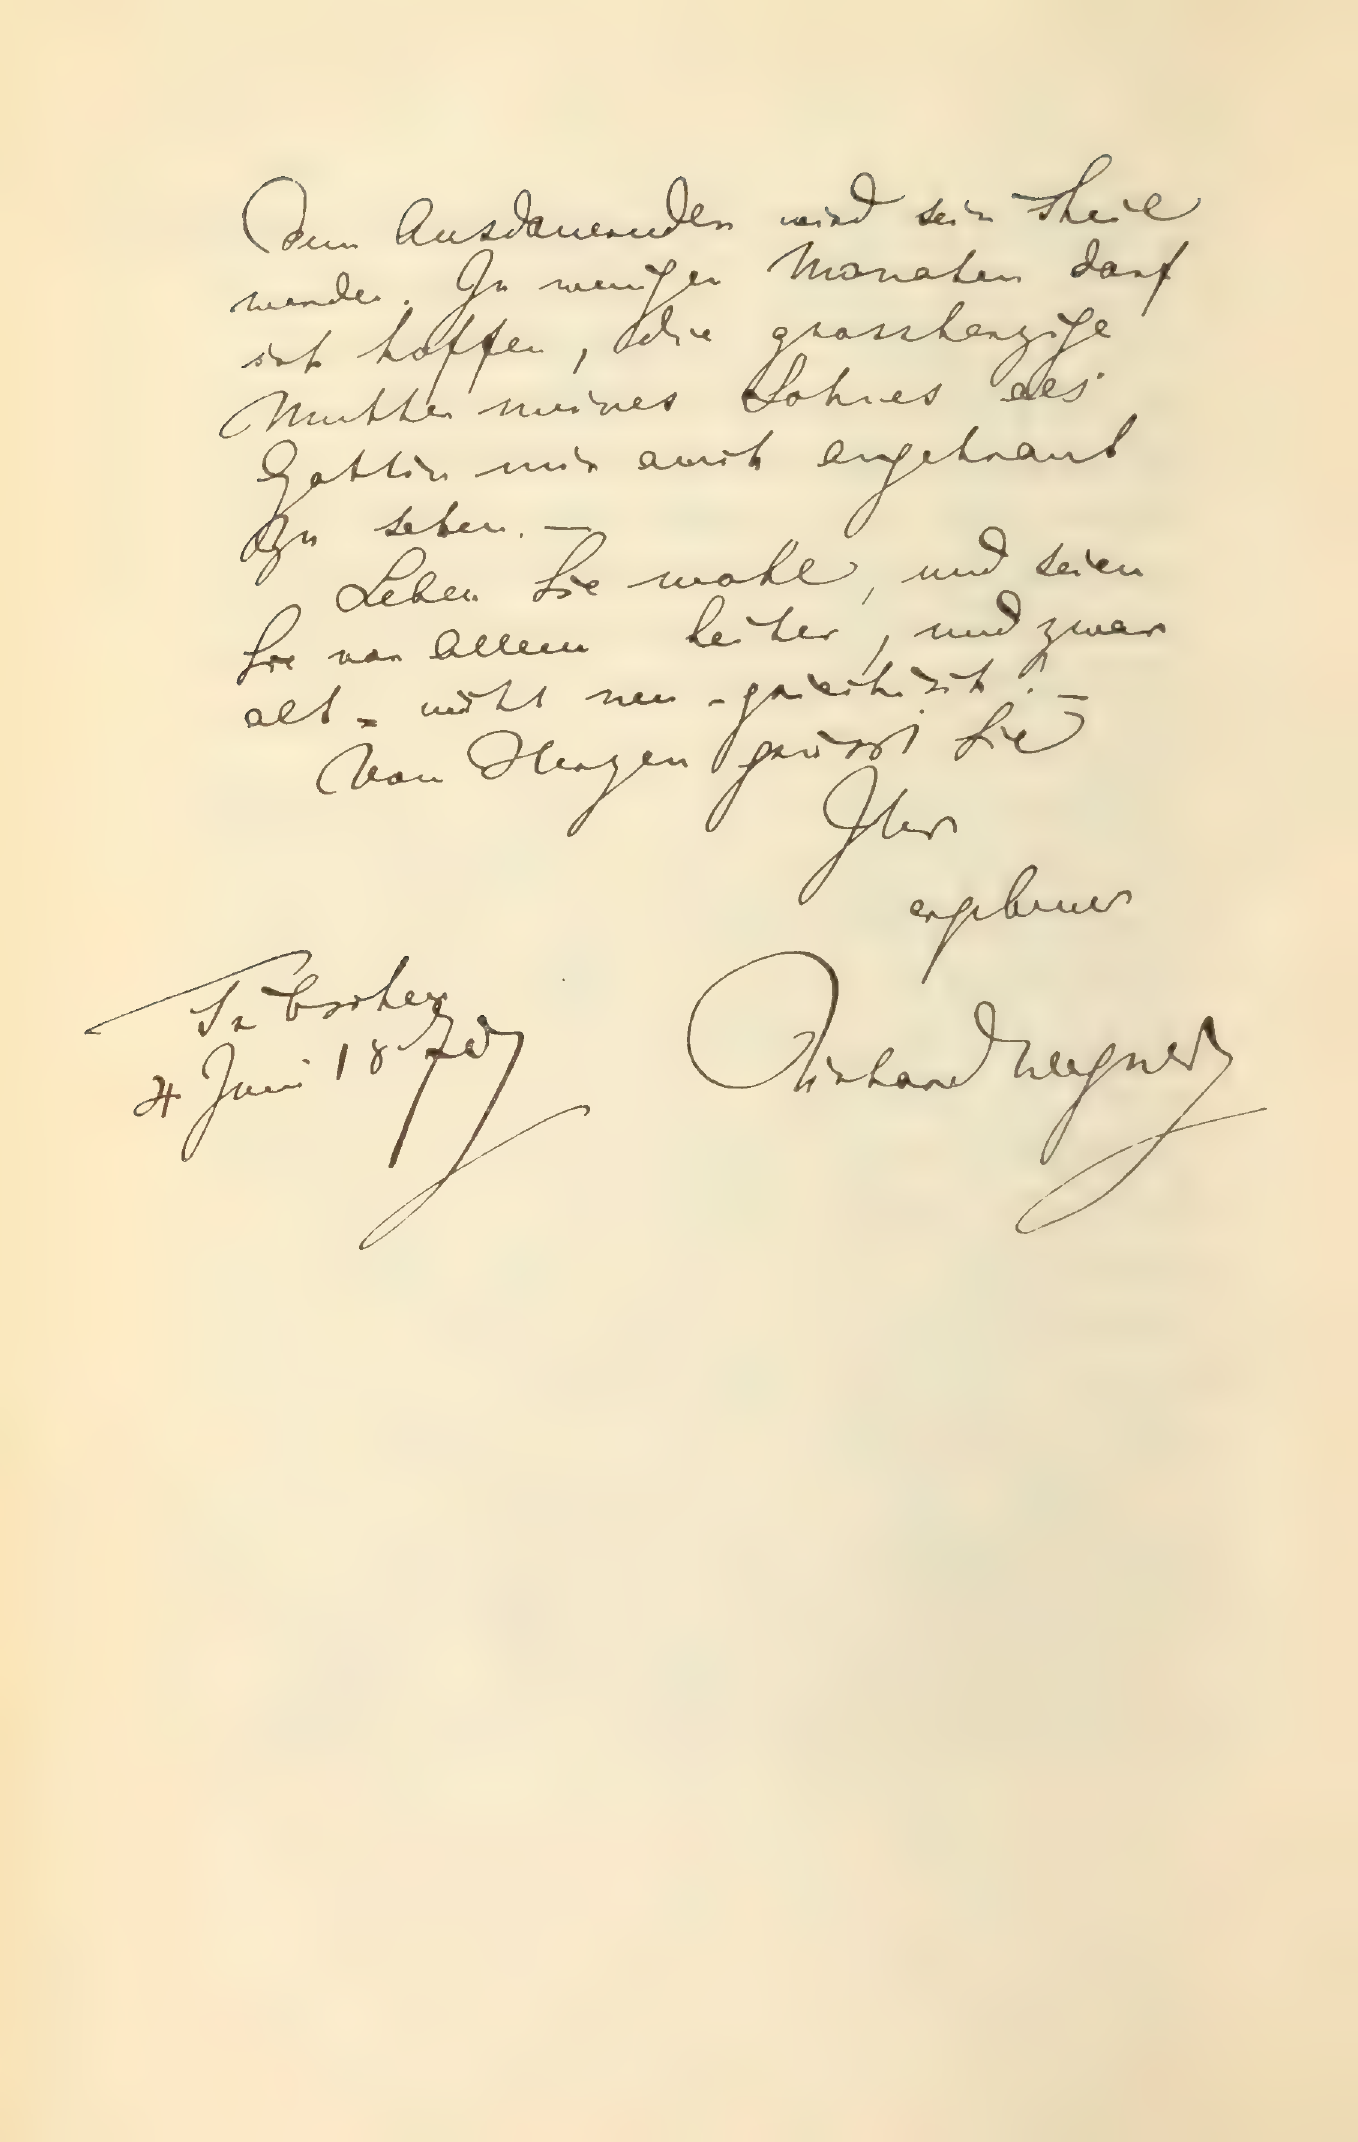 Dem Ausdauernden wird sein Theil
werden. In wenigen Monaten darf
ich hoffen, die grossherzige
Mutter meines Sohnes als
Gattin mir auch angetraut
zu sehen. —
Leben Sie wohl, und seien
Sie vor Allem heiter, und zwar
alt- nicht neu-griechisch! —
Von Herzen grüsst Sie
Ihr
ergebener
Tribschen
4 Juni 1870
Richard Wagner